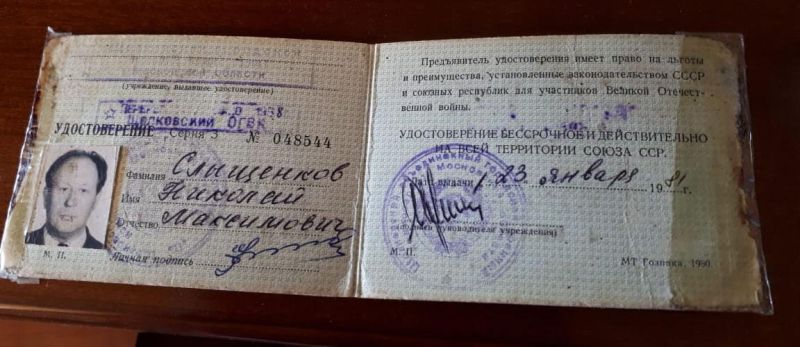 области
(учреждение, выдавшее удостоверение)
Щелковский ОГВК
УДОСТОВЕРЕНИЕ Серия З № 048544
Фамилия Слищенков
Имя Николай
Отчество Максимович
Личная подпись
М. П.
Предъявитель удостоверения имеет право на льготы
и преимущества, установленные законодательством СССР
и союзных республик для участников Великой Отечест-
венной войны.
УДОСТОВЕРЕНИЕ БЕССРОЧНОЕ И ДЕЙСТВИТЕЛЬНО
НА ВСЕЙ ТЕРРИТОРИИ СОЮЗА ССР.
Дата выдачи 23 января 1981 г.
(подпись руководителя учреждения)
М. П.
МТ Гознака. 1980.